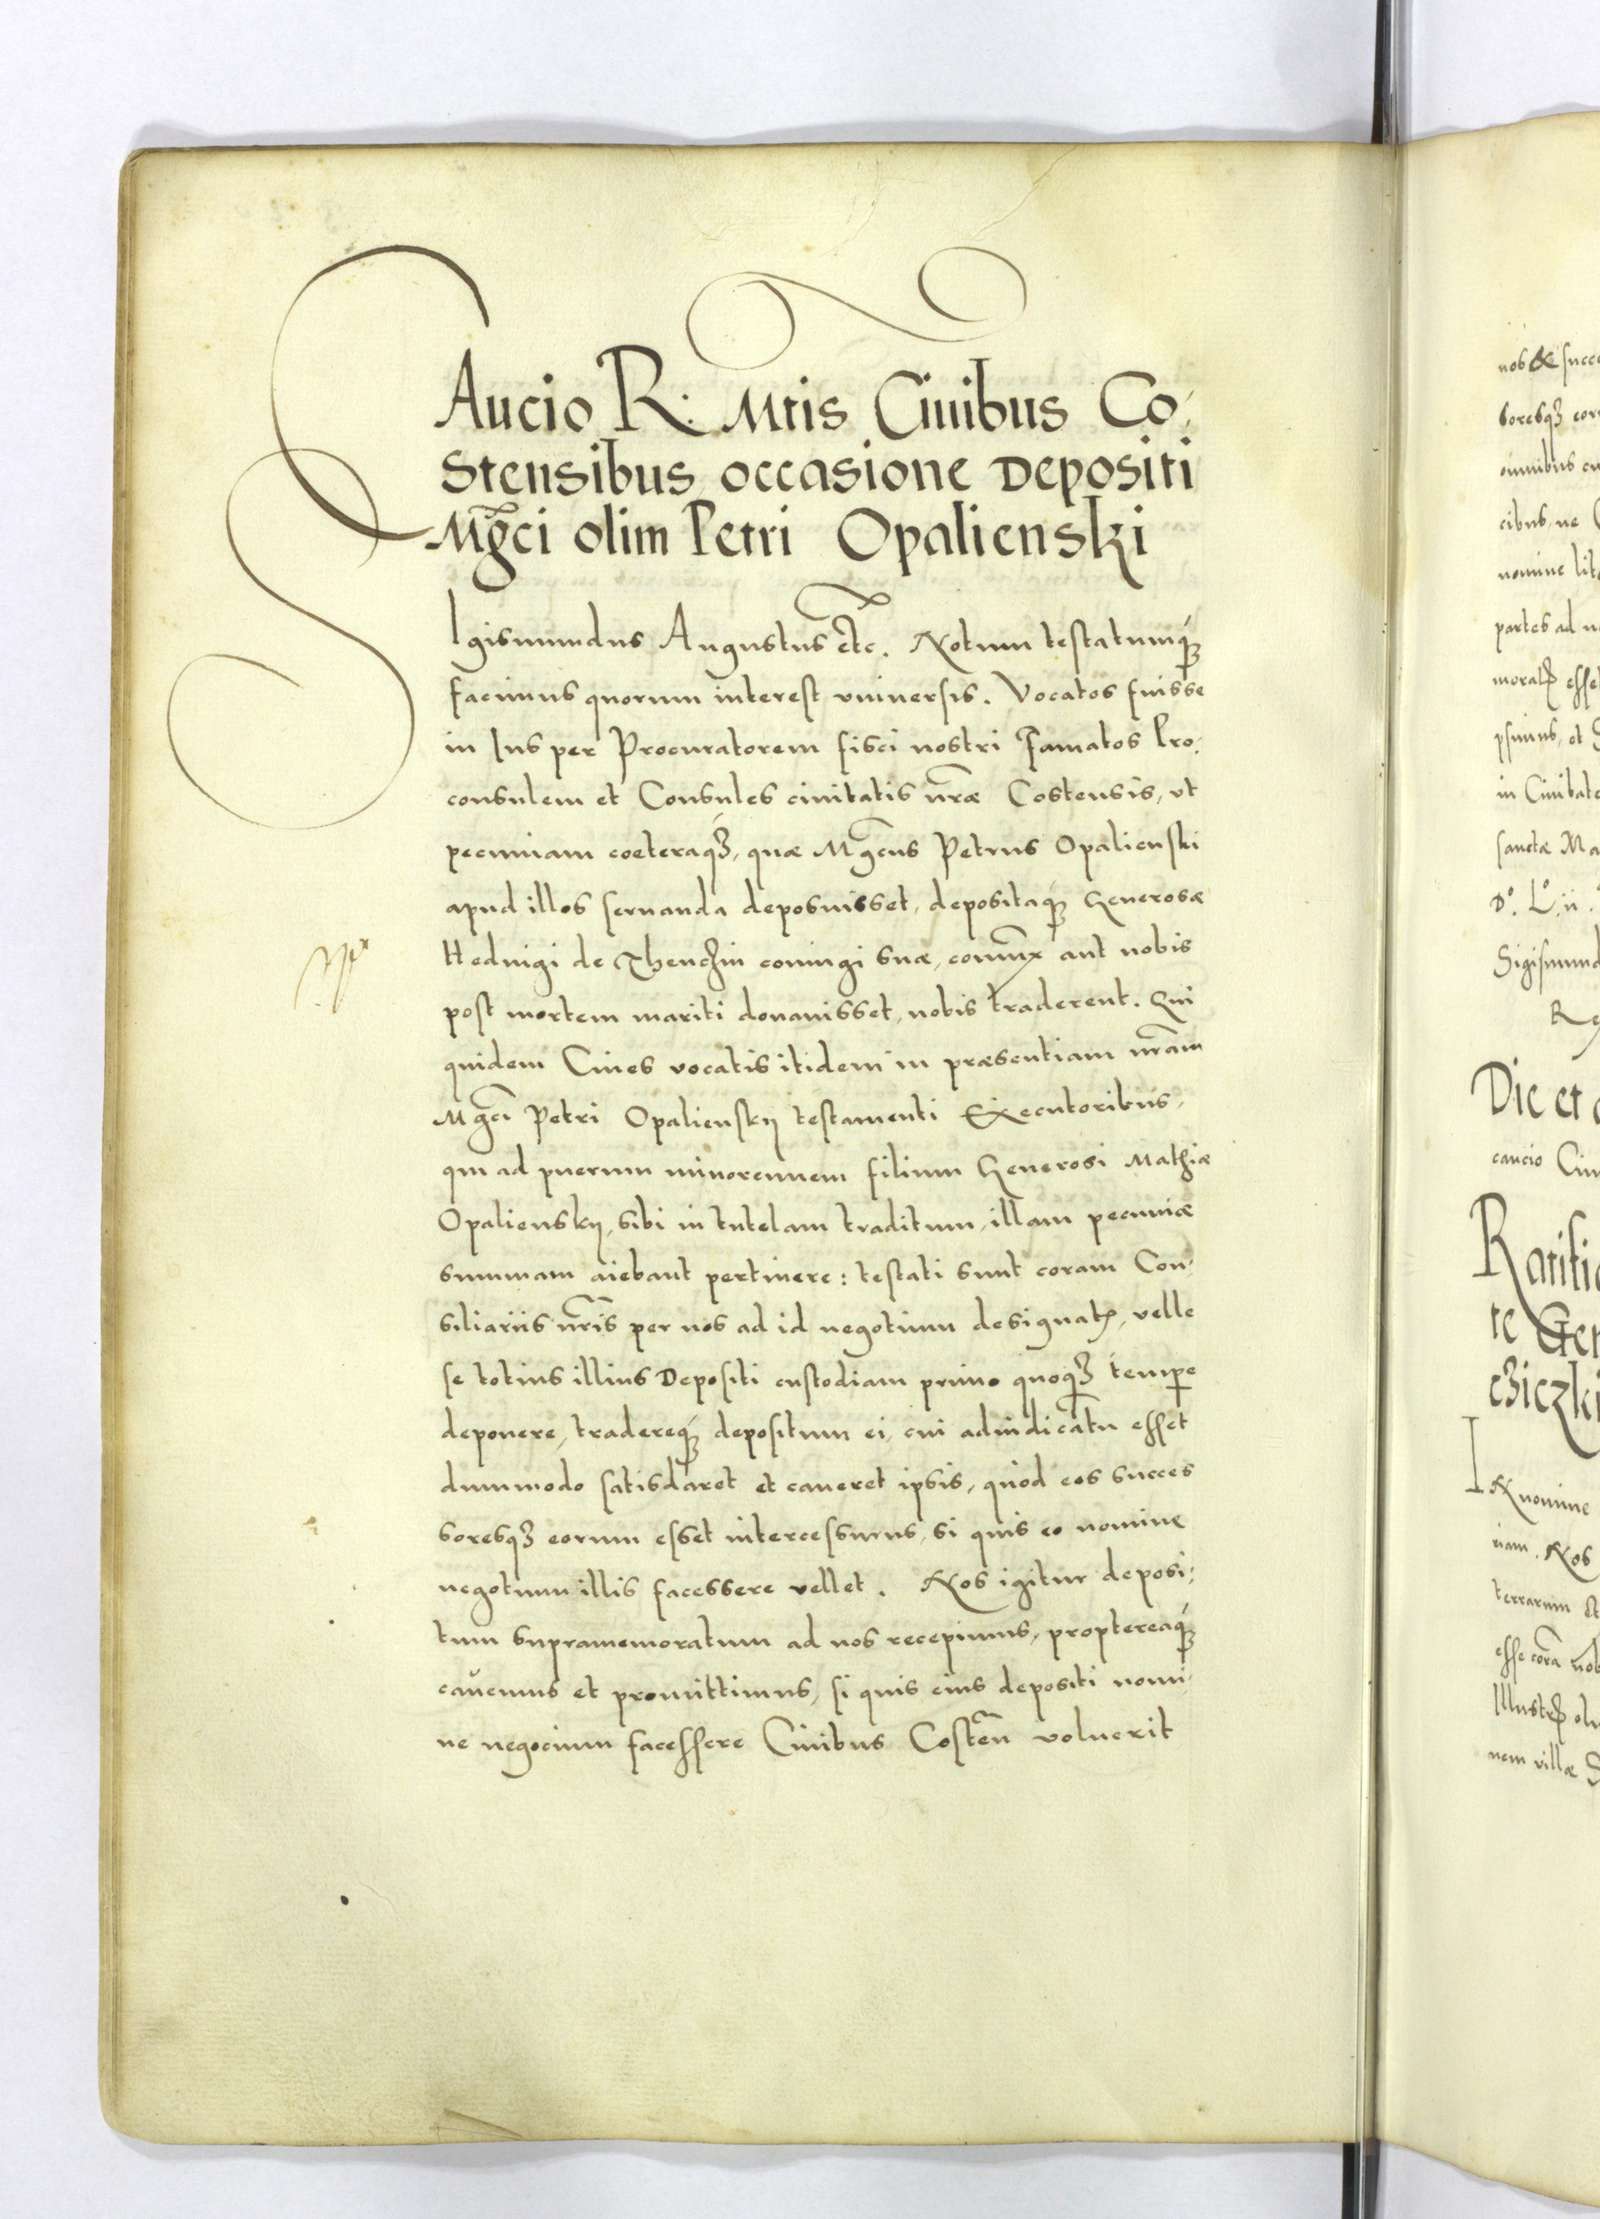 CAucio R. Mtis Ciuibus Co-
stensibus occasione Depositi
Mgci olim Petri Opalienski
SIgismundus Augustus etc. Notum testatumq;
facimus quorum interest vniuersis. Vocatos fuisse
in Ius per Procuratorem fisci nostri Famatos Pro-
consulem et Consules ciuitatis nrae Costensis, vt
pecuniam coeteraq;, quae Mgcus Petrus Opalienski
apud illos seruanda deposuisset, depositaq; Generosae
Heduigi de coniugi suae, aut nobis
post mortem mariti donauisset, nobis traderent. Qui
quidem Ciues vocatis itidem in praesentiam nram
Mgci Petri Opalienskij testamenti Executoribus,
qui ad puerum minorennem filium Generosi Mathiae
Opalienskij, sibi in tutelam traditum, illam pecuniae
summam aiebant pertinere: testati sunt coram Con-
siliariis nris per nos ad id negotium designatis, velle
se totius illius Depositi custodiam primo quoq; tempe
deponere, tradereq; depositum ei, cui adiudicatu esset
dummodo satisdaret et caueret ipsis, quod eos succes
soresq; eorum esset intercessurus, si quis eo nomine
negotium illis facessere vellet. Nos igitur deposi-
tum supramemoratum ad nos recepimus, proptereaq;
cauemus et promittimus, si quis eius depositi nomi-
ne negocium facessere Ciuibus Costen voluerit
nob & succe
soresq; eor
omnibus
cibus, ne
nomine lit
partes ad n
esset
in Ciuitate
sanctae Ma
Do. Lo. ii.
Sigismund
Re
Die et
caucio Ciu
Ratifi
te Gen
cziczki
IN nomine
riam. Nos
terrarum et
esse cora nob
Illustr ol
nem villae S